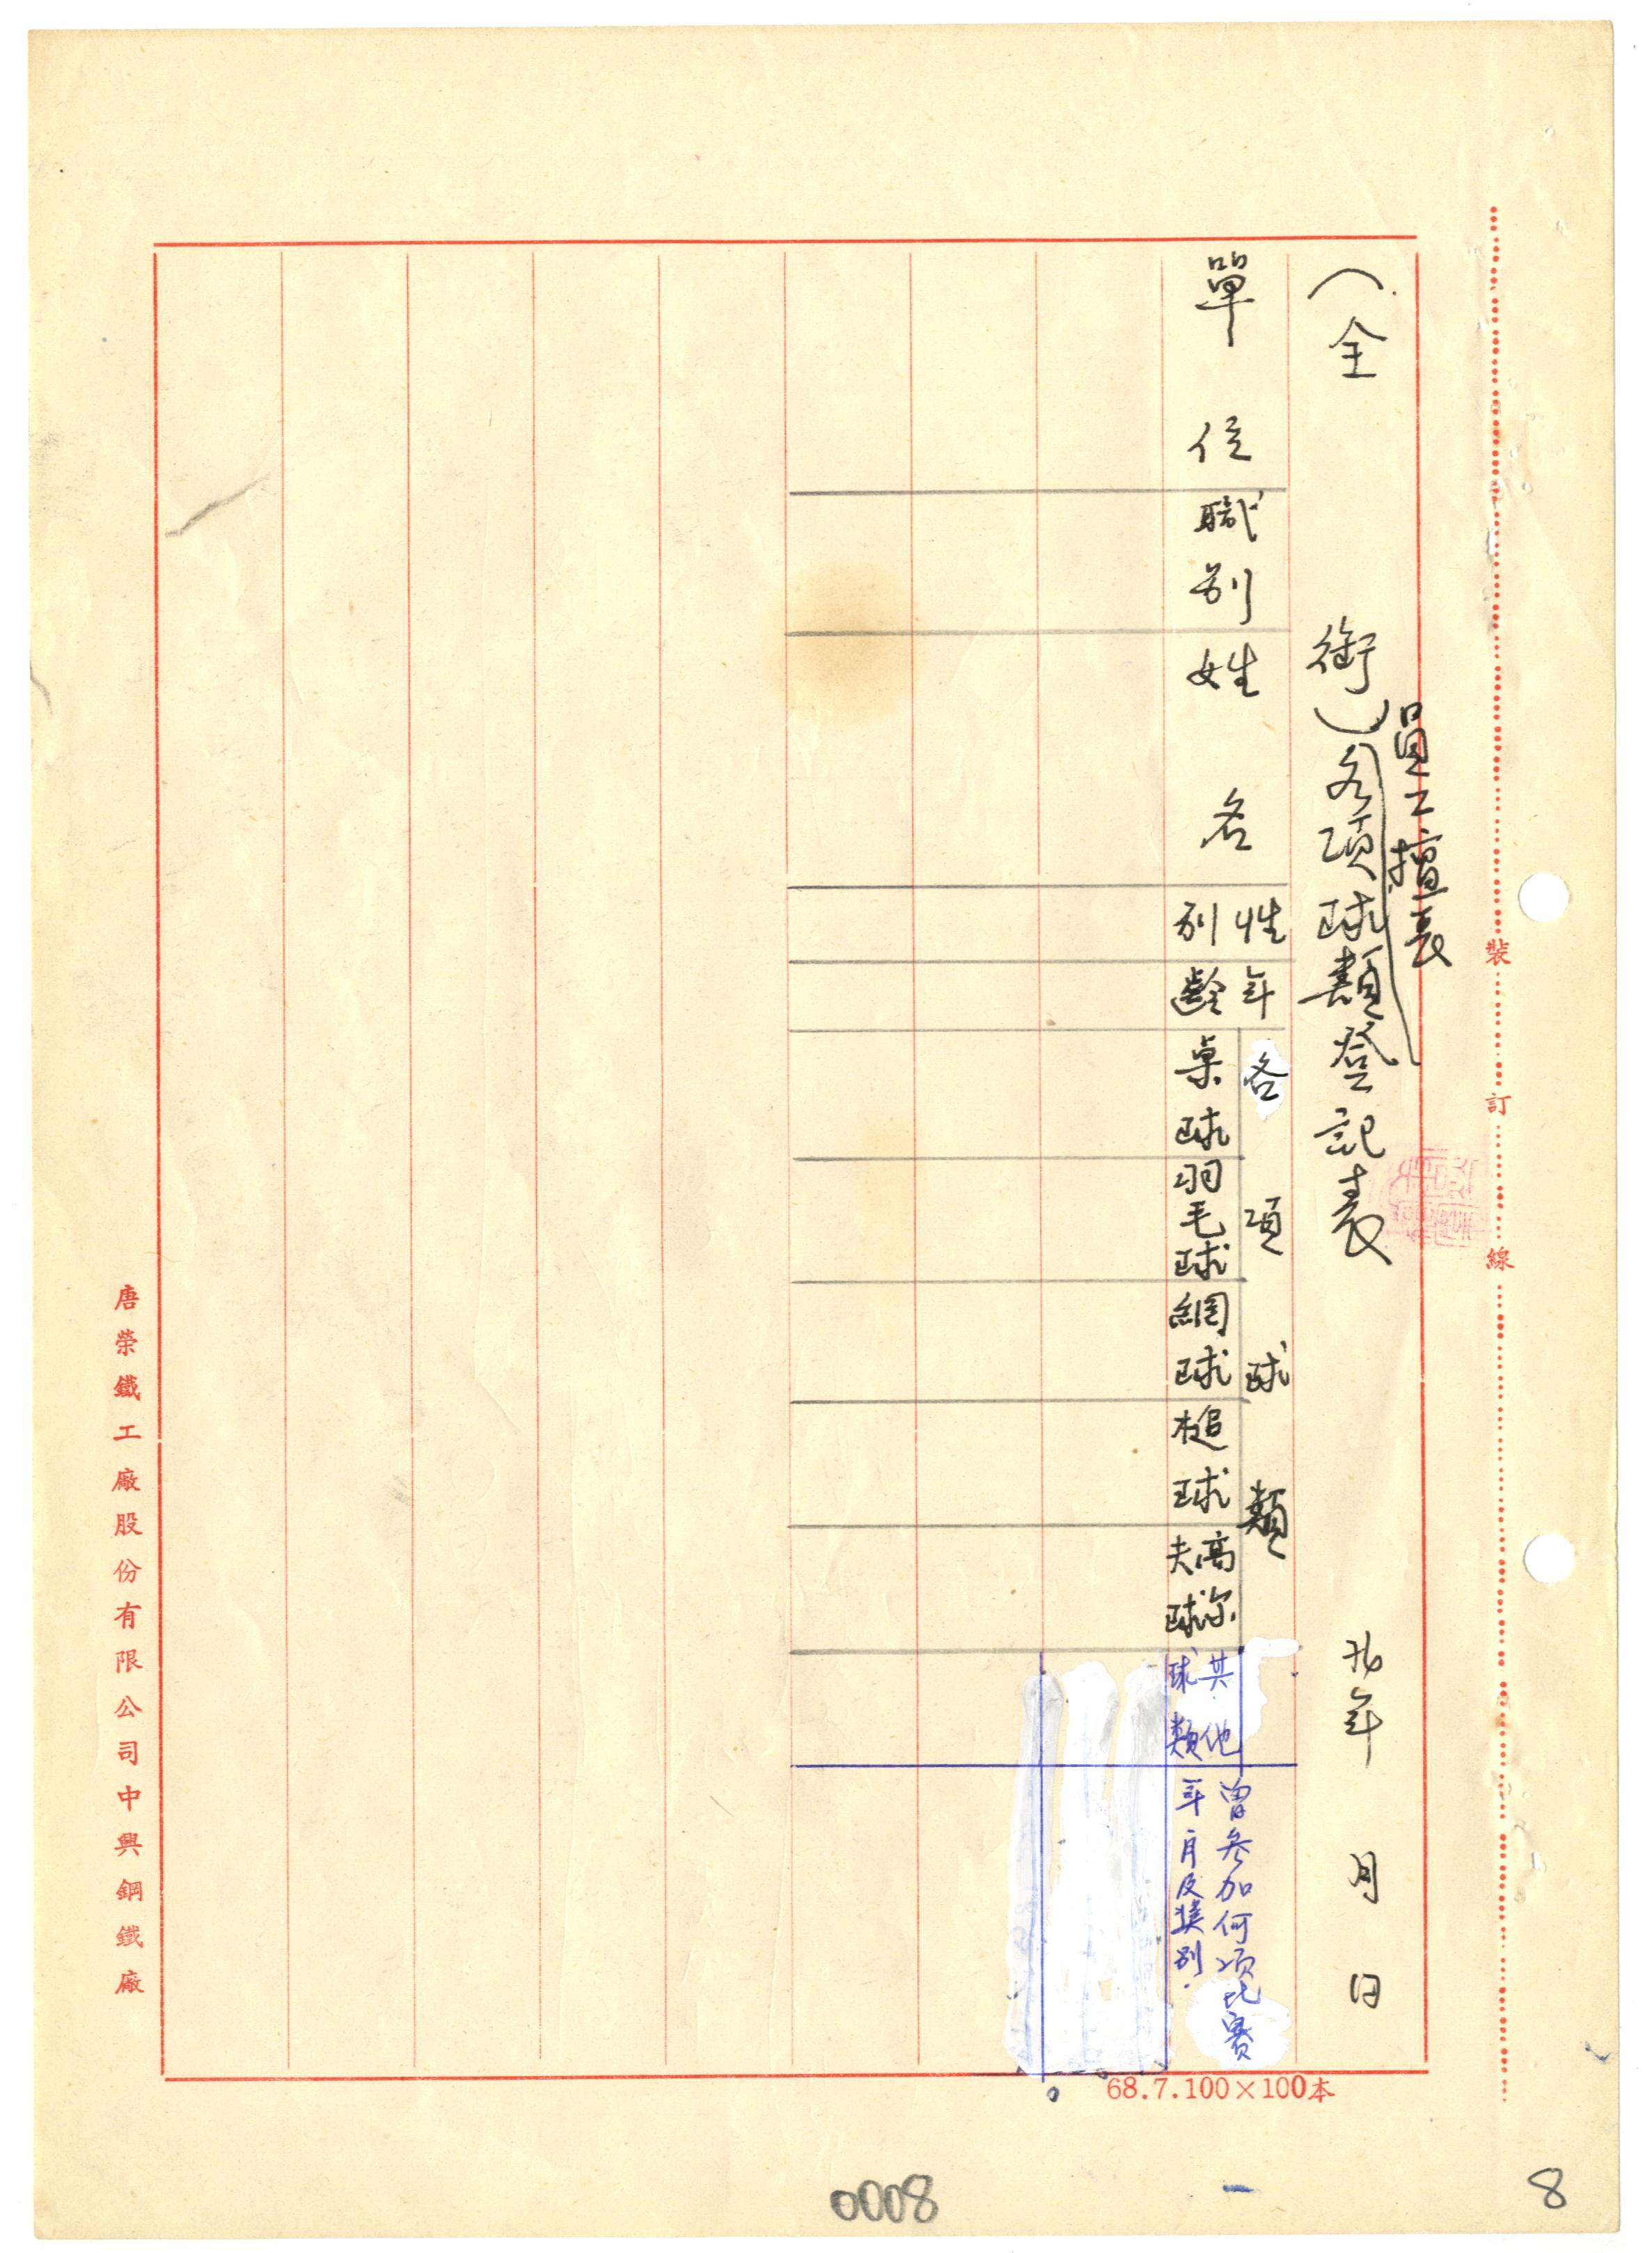 裝訂線
員工擅長
(全銜)各項球類登記表 年 月 日
單位
職別
姓名
性別
年齡
各項球類
桌球
羽毛球
網球
槌球
高尔夫球
其他球類
曾參加何項比賽
年月及獎別.
唐榮鐵工廠股份有限公司中興鋼鐵廠
68.7.100×100本
0008
8